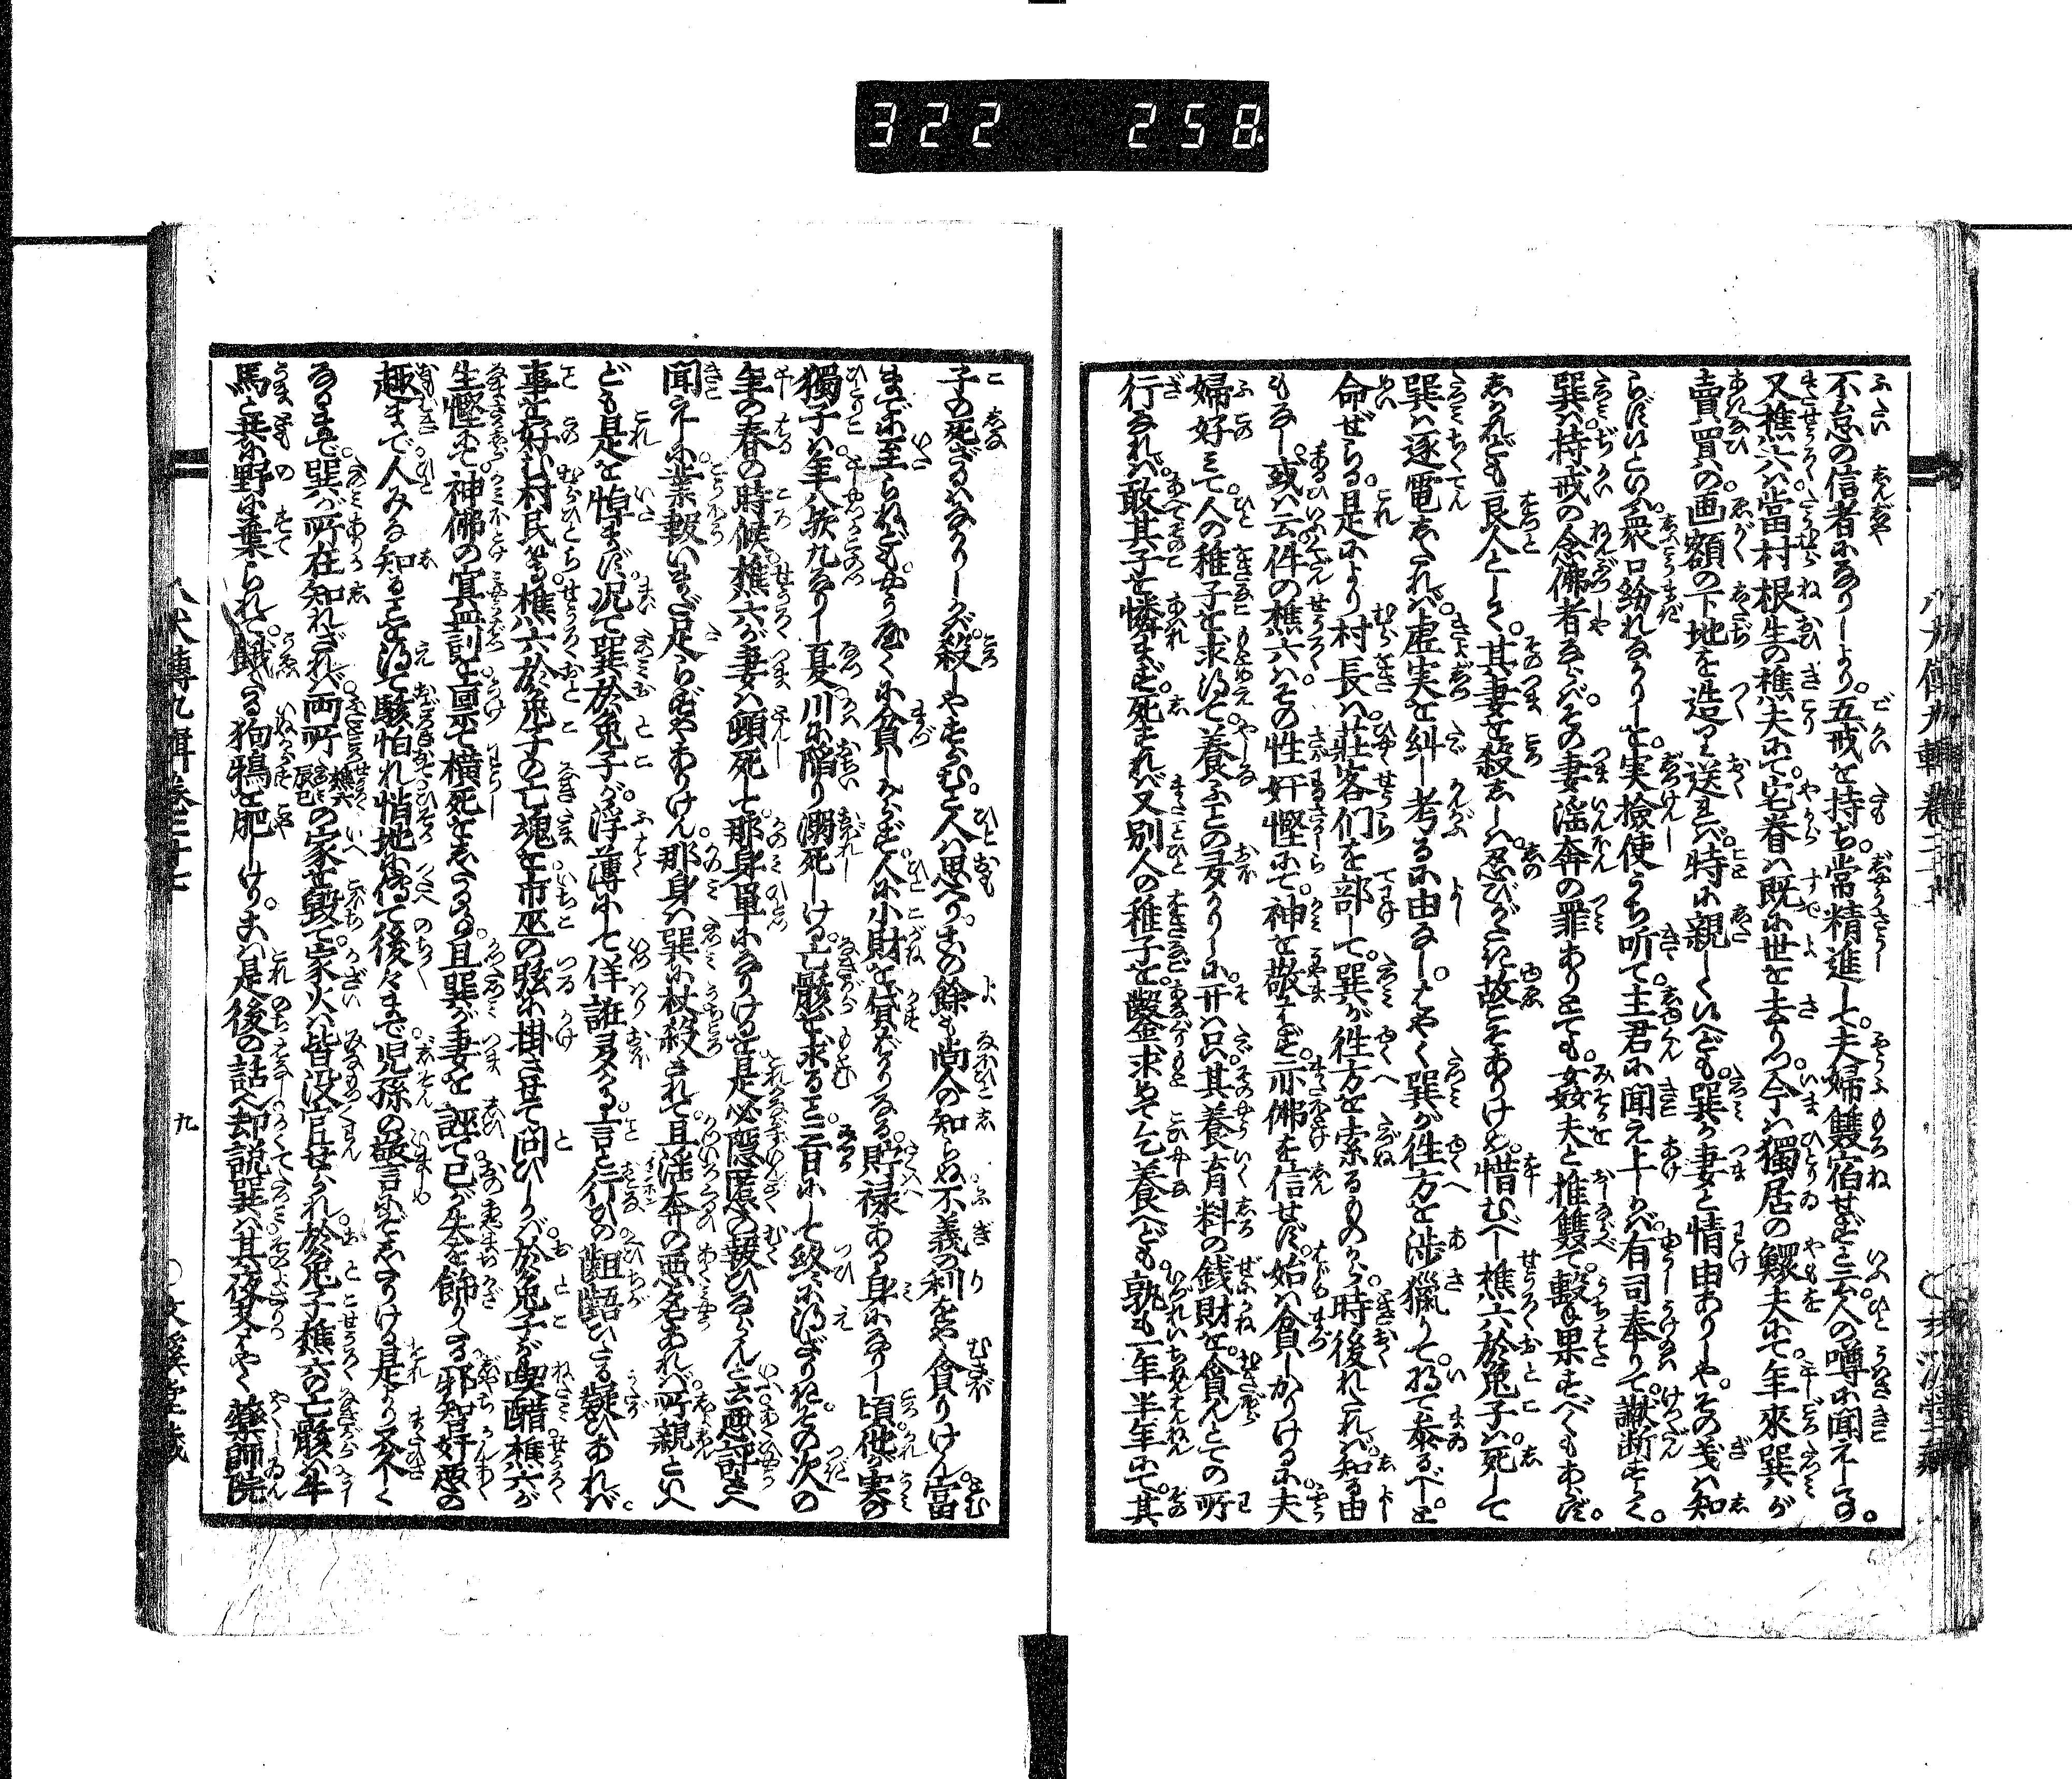 322 258
不怠の信者になりしより。五戒を持ち。常精進して夫婦雙宿せずと云人の噂に聞えしのみ。
又樵六は當村根生の樵夫にて。宅眷は既に世を去りつ。今は獨居の鰥夫にて。年來巽が
賣買の画額の下地を造りて送れば。特に親しくいへども。巽が妻と情由ありしや。その義は知
らずといふ。衆口紛れなかりしを。実撿使うち听て主君に聞え上しかば。有司奉りて讞断すらく。
巽は持戒の念佛者ならば。その妻淫奔の罪ありとても。姦夫と推雙て撃も果すべくもあらず。
しかれども良人として。其妻を殺ししは。忍びがたき故こそありけめ。惜むべし樵六於兔子は死して
巽は逐電したれば。虚実を糾し考るに由なし。とやく巽が徃方を渉獵りて。將て參るべしと
命ぜらる。是により村長は。莊客們を部して。巽が徃方を索るものから。時後れたれば知る由
もなし。或は云。件の樵六は。その性奸慳にて。神を敬はず。亦佛を信せず。始は貧しかりけるに。夫
婦好みて人の稚子を求め得て。養ふこと多かりしに。そは只其養育料の銭財を。貪んとての所
行なれば。敢其子を憐まず。死すれば又別人の稚子を。鑿求めて乞養へども。孰も一年半年にて。其
子の死ざるはなかりしかば。殺しやすらむと人は思へり。この餘も尚人の知らぬ不義の利をや貪りけん。富
までに至らねども。やうやくに貧しからず。人に小財を貸すばかりなる。貯祿ある身になりし頃。他が実の
獨子は。年八歳九なりし夏。川に陥り溺死しける。亡骸を求ること三日にして終に得ざりき。その次の
年の春の時候。樵六が妻は頓死して。那身單になりけるを。是必隱慝の報ひならんと云悪評さへ
聞えしに。業報いまだ足らずやありけん。那身は巽に杖殺されて。且淫奔の悪名あれば。所親といへ
ども是を悼まず。况て巽於兔子が。浮薄にして佯誑多かる。言と行ひの齟齬ひたる疑ひあれば。
事を好む村民等。樵六於兔子の亡魂を。市巫の弦に掛させて問ひしかば。於兔子が喫醋樵六が
生慳にて。神佛の冥罰を稟て横死をしたる。且巽が妻を誣て。己が失を飾りたる。邪智奸悪の
趣まで。人みな知ることを得て。駭怕れ悄地に傳て後々まで。児孫の敬言にぞしたりける。是より又久しく
なるまで。巽が所在知れざれば。両所樵六辰巳の家を毀て。家火は皆没官せられ。於兔子樵六の亡骸は。牛
馬と共に野に棄られて。餓たる狗鴉を肥しけり。こは是後の話。却説巽は其夜又とやく。藥師院
八犬傳九輯卷三十七
九
○文溪堂藏